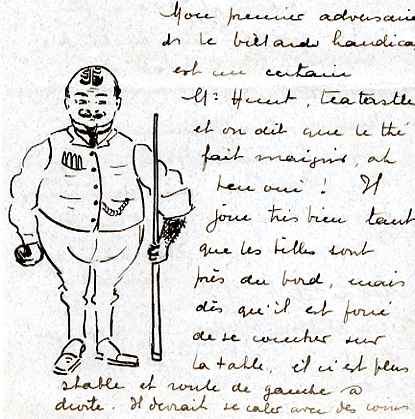 Mon premier adversaire
ds le billards handica
est un certain
Mr Hunt, teataste
et on dit que le thé
fait maigrir, ah
ben oui ! Il
joue très bien tant
que les billes sont
près du bord, mais
dès qu'il est forcé
de se coucher sur
la table, il n'est plus
stable et roule de gauche à
droite. Il devrait se caler avec des